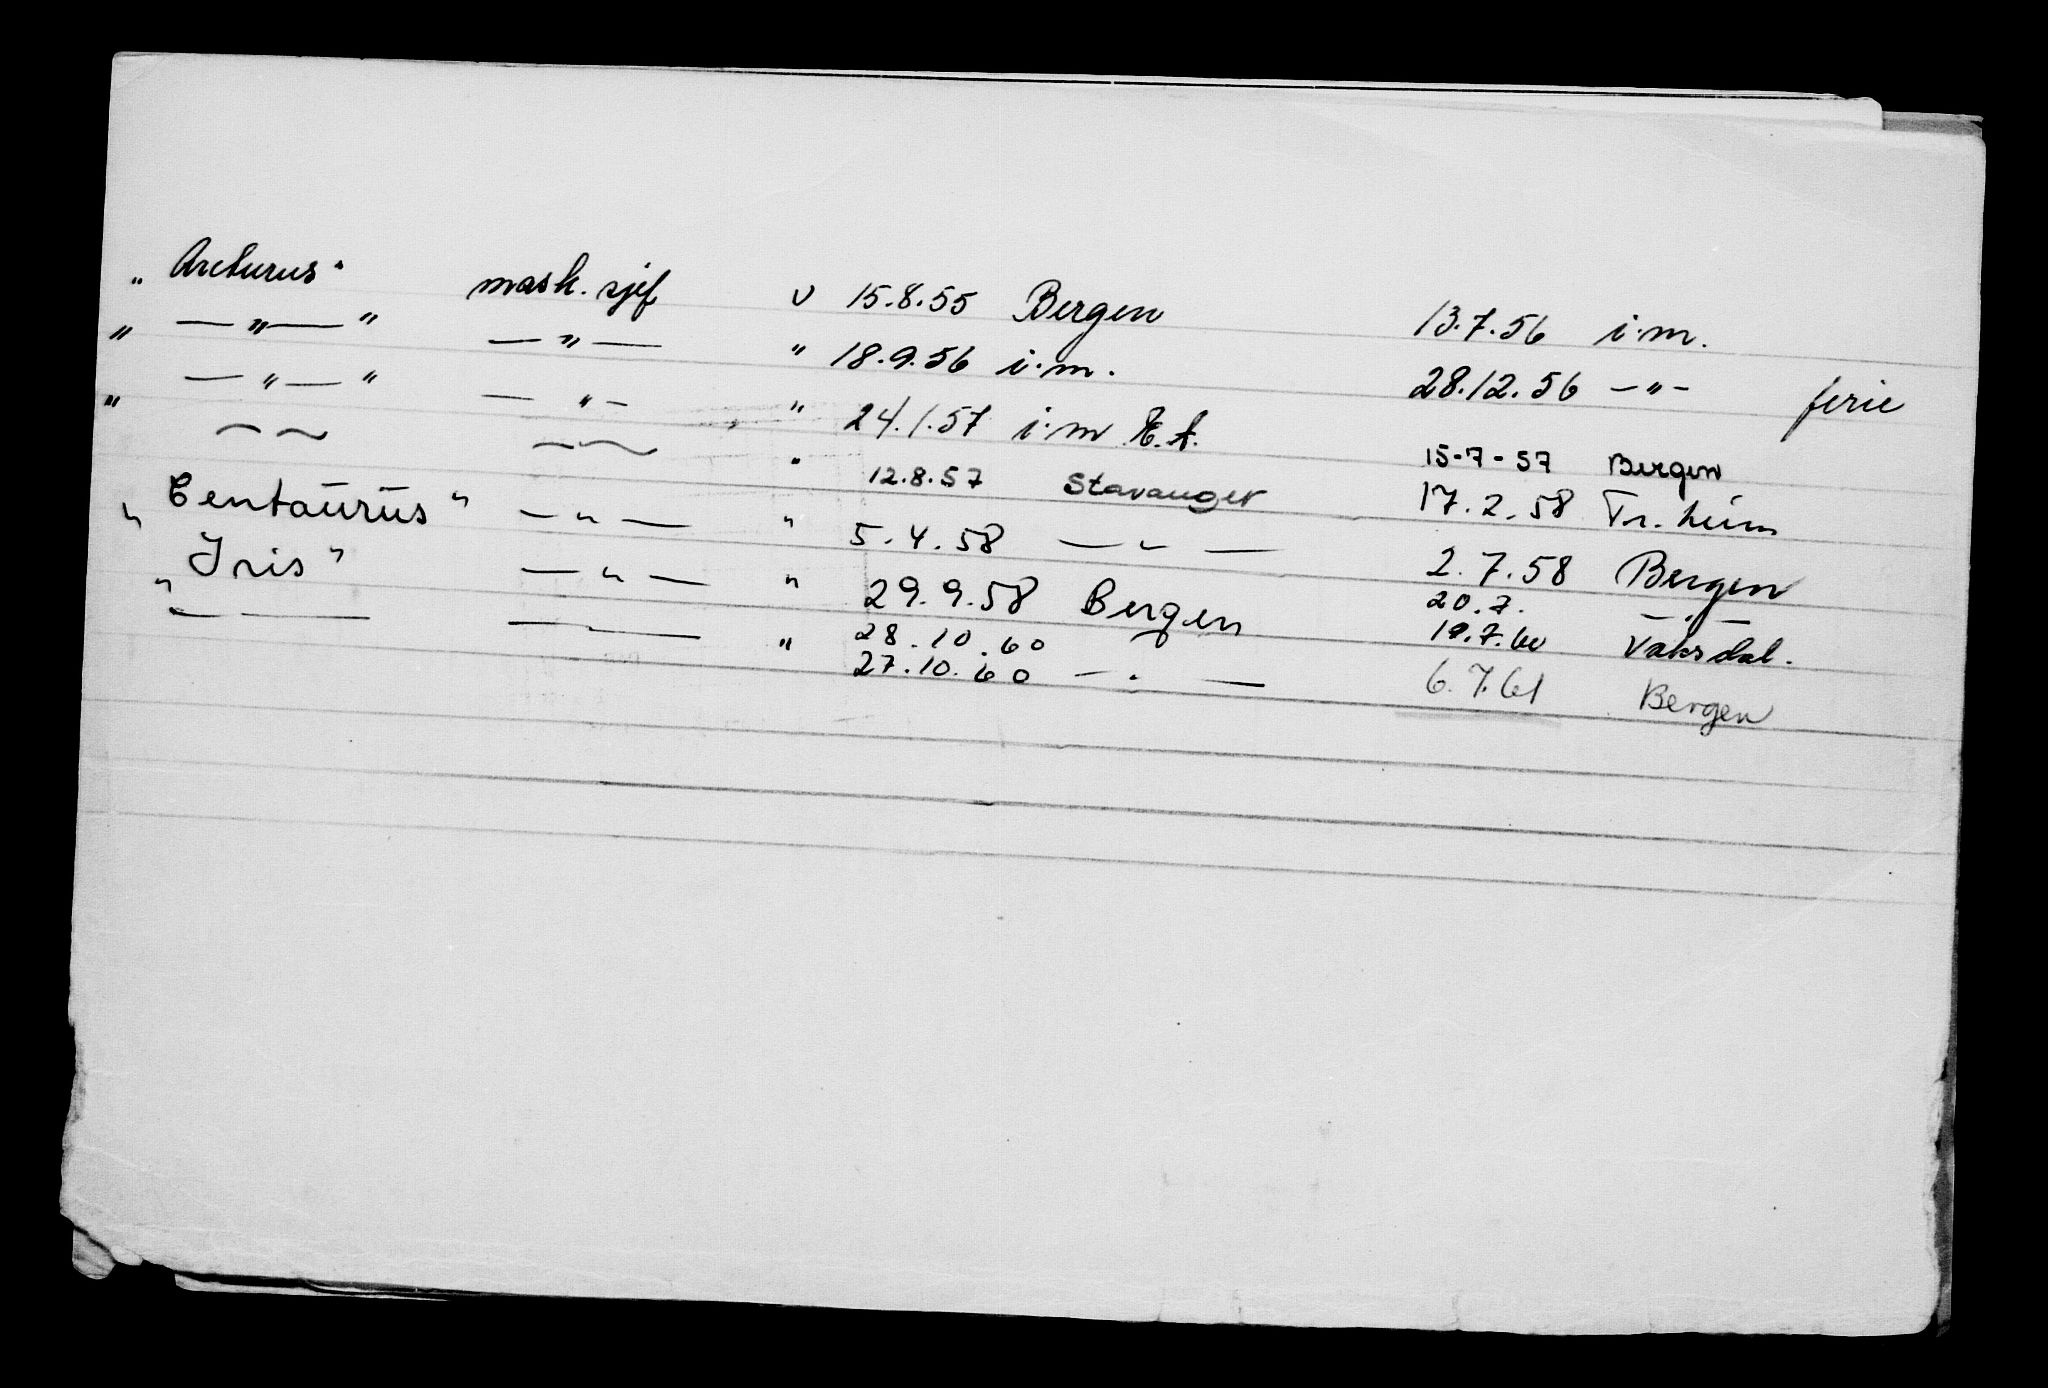 „ Arcturus " mask. sjef v 15.8.55 Bergen 13.7.56 i.m.
„ — " — " — " — " 18.9.56 i.m. 28.12.56 — " — ferie
„ — " — " — " — " 24.1.57 i.m 15-7-57 Bergen
— — — — " 12.8.57 Stavanger 17.2.58 Tr.heim
„ Centaurus " — " — " 5.4.58 — " — 2.7.58 Bergen
„ Iris " — " — " 29.9.58 Bergen 20.7.
28.10.60 19.7.60 Vaksdal.
— — — — " 27.10.60 — " — 6.7.61 Bergen